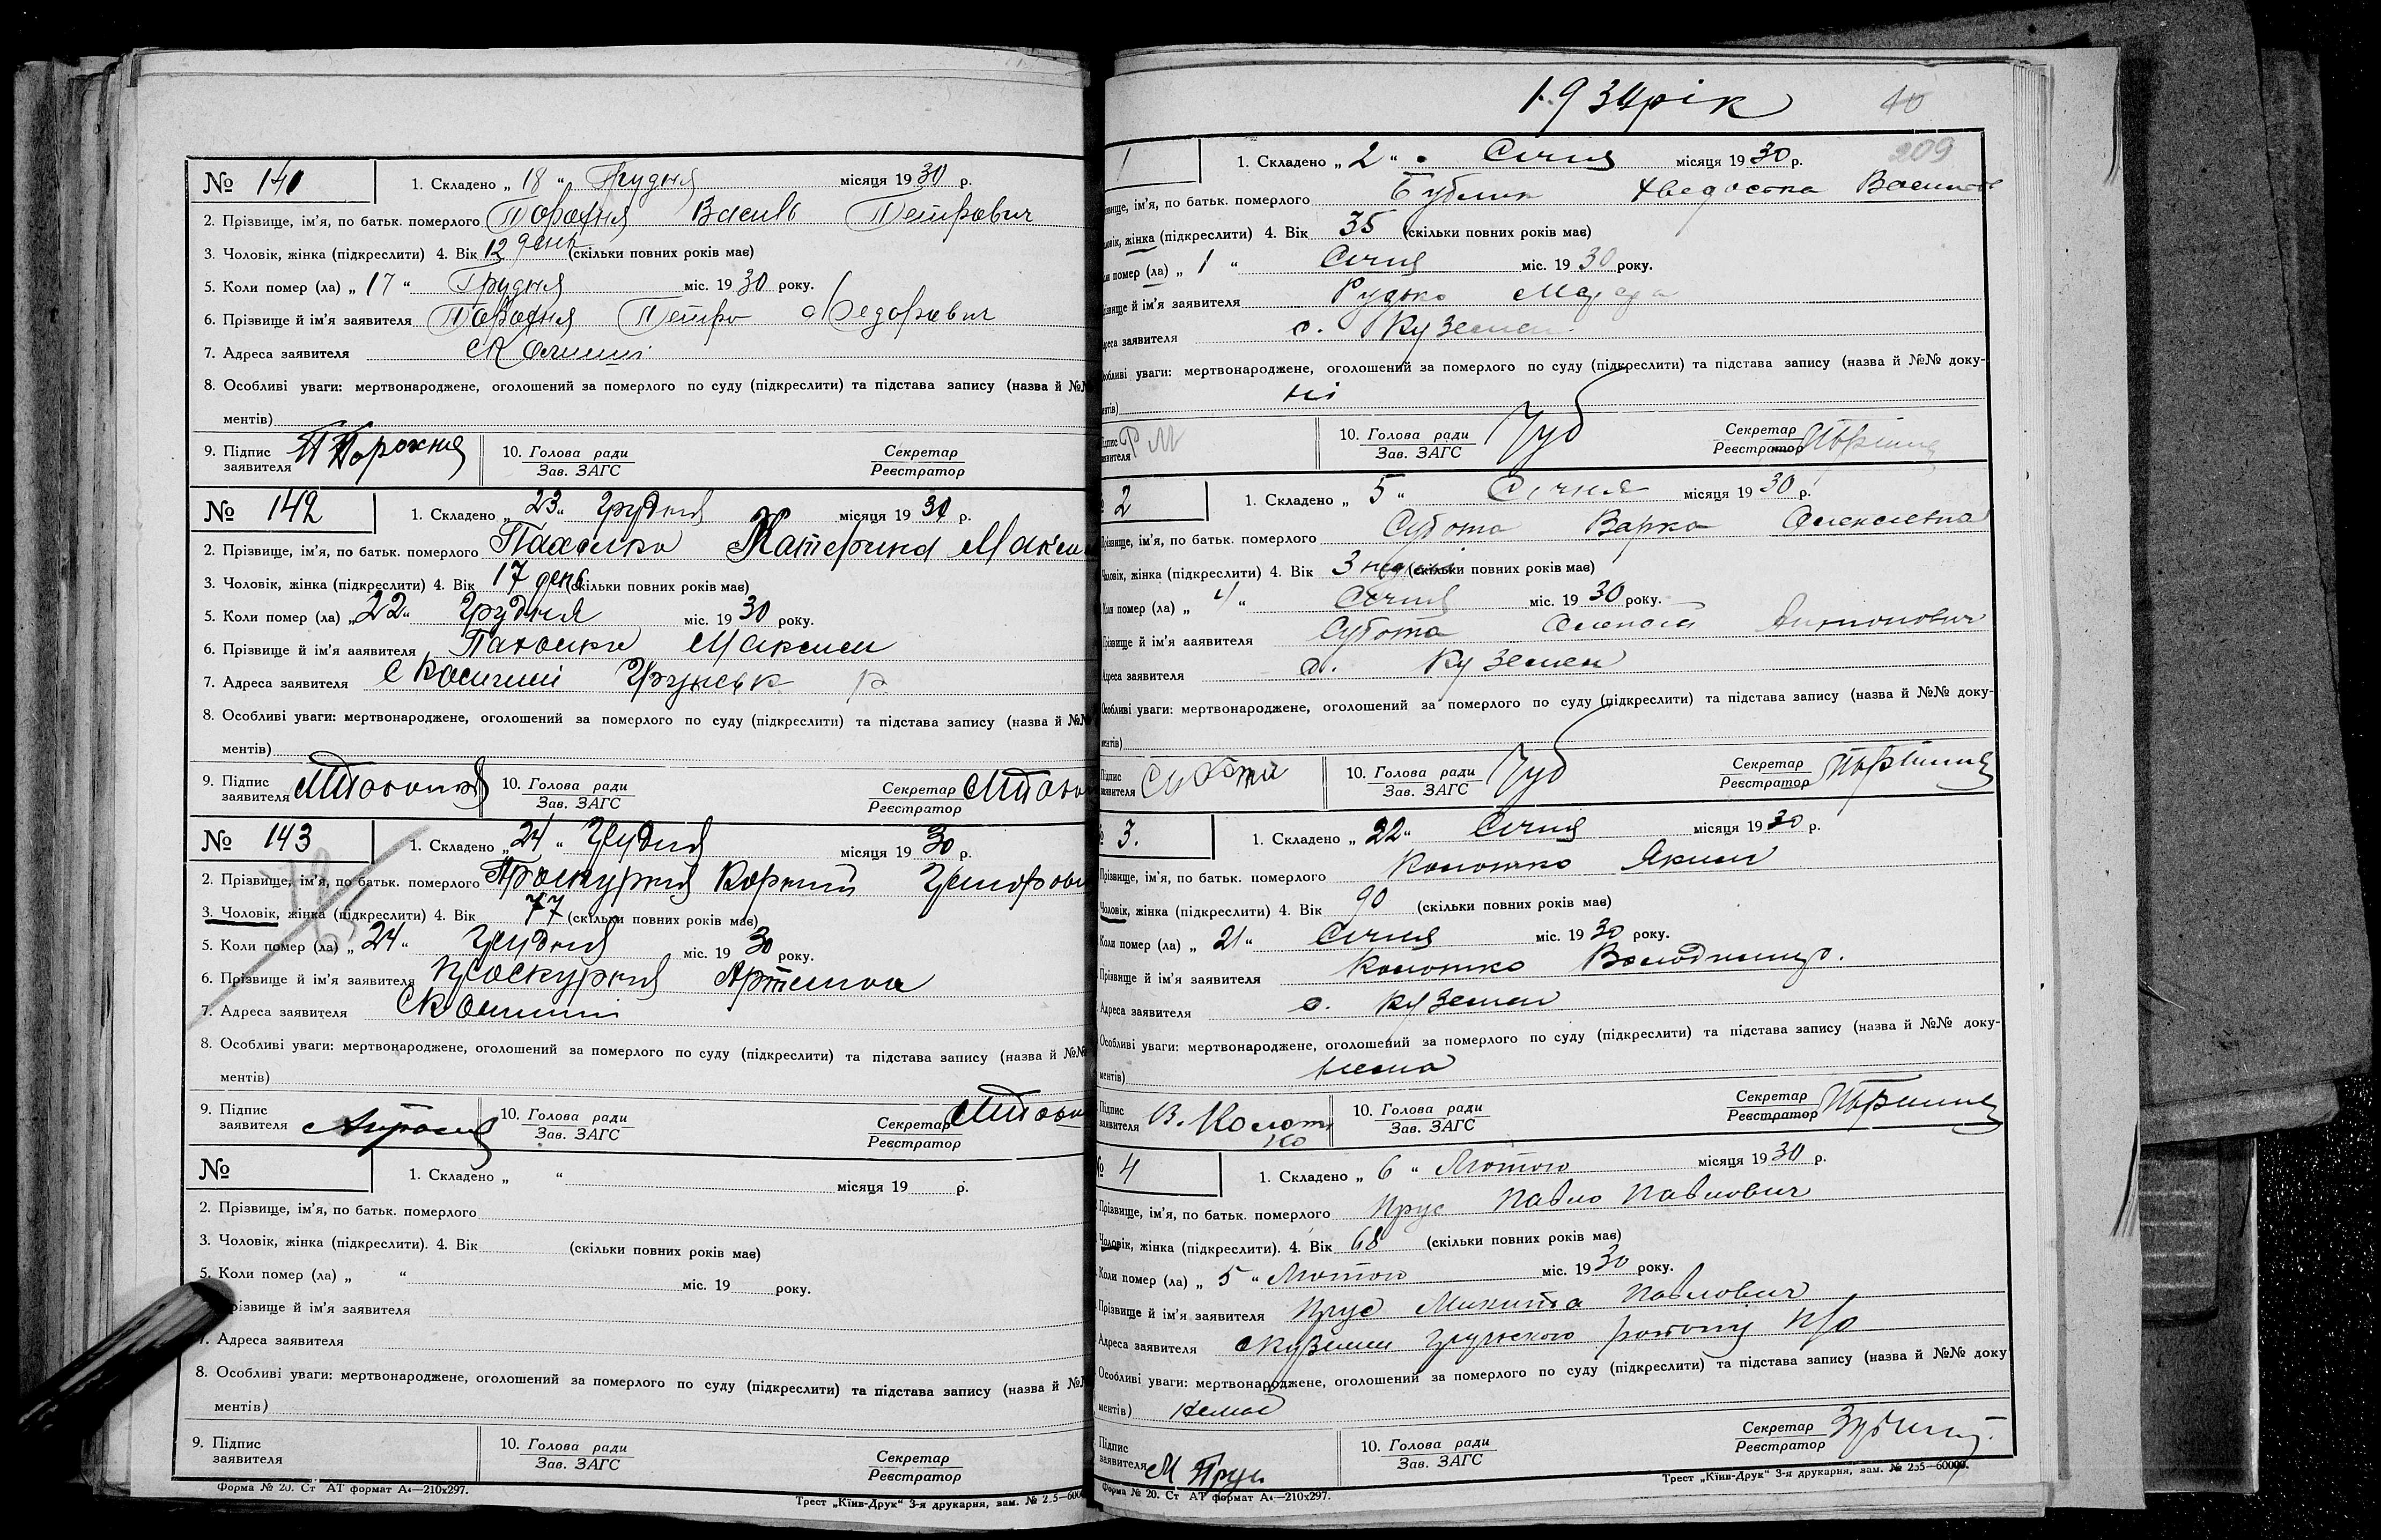 № 141 1. Складено „ 18 “ Грудня місяця 1930 р.
2. Прізвище, ім'я, по батьк. померлого Порохня Василь Петрович
3. Чоловік, жінка (підкреслити) 4. Вік 12 день (скільки повних років має)
5. Коли помер (ла) „ 17 “ Грудня міс. 1930 року.
6. Прізвище й ім'я заявителя Порохня Петро Федорович
7. Адреса заявителя
8. Особливі уваги: мертвонароджене, оголошений за померлого по суду (підкреслити) та підстава запису (назва й №№
ментів)
9. Підпис заявителя П Порохня 10. Голова ради Зав. ЗАГС Секретар Реєстратор
№ 142 1. Складено „ 23 “ Грудня місяця 1930 р.
2. Прізвище, ім'я, по батьк. померлого Катерина
3. Чоловік, жінка (підкреслити) 4. Вік 17 день (скільки повних років має)
5. Коли помер (ла) „ 22 “ Грудня міс. 1930 року.
6. Прізвище й ім'я заявителя Максим
7. Адреса заявителя
8. Особливі уваги: мертвонароджене, оголошений за померлого по суду (підкреслити) та підстава запису (назва й №№
ментів)
9. Підпис заявителя 10. Голова ради Зав. ЗАГС Секретар Реєстратор
№ 143 1. Складено „ 24 “ Грудня місяця 1930 р.
2. Прізвище, ім'я, по батьк. померлого Проскурня Корній
3. Чоловік, жінка (підкреслити) 4. Вік 77 (скільки повних років має)
5. Коли помер (ла) „ 24 “ Грудня міс. 1930 року.
6. Прізвище й ім'я заявителя Проскурня
7. Адреса заявителя
8. Особливі уваги: мертвонароджене, оголошений за померлого по суду (підкреслити) та підстава запису (назва й №№
ментів)
9. Підпис заявителя 10. Голова ради Зав. ЗАГС Секретар Реєстратор
№ 1. Складено „ “ місяця 19 р.
2. Прізвище, ім'я, по батьк. померлого
3. Чоловік, жінка (підкреслити). 4. Вік (скільки повних років має)
5. Коли помер (ла) „ “ міс. 19 року.
різвище й ім'я заявителя
7. Адреса заявителя
8. Особливі уваги: мертвонароджене, оголошений за померлого по суду (підкреслити) та підстава запису (назва й №№
ментів)
9. Підпис заявителя 10. Голова ради Зав. ЗАГС Секретар Реєстратор
Форма № 20. Ст АТ формат А4—210х297. Трест „Київ-Друк“ 3-я друкарня, зам.
рік 40
209
1 1. Складено „ 2 “ Січня місяця 1930 р.
ім'я, по батьк. померлого Бублик
жінка (підкреслити) 4. Вік 35 (скільки повних років має)
помер (ла) „ 1 “ Січня міс. 1930 року.
й ім'я заявителя Рудько
заявителя с. Куземен
уваги: мертвонароджене, оголошений за померлого по суду (підкреслити) та підстава запису (назва й №№ доку-
ні
Р М 10. Голова ради Зав. ЗАГС Зуб Секретар Реєстратор
2 1. Складено „ 5 “ Січня місяця 1930 р.
Прізвище, ім'я, по батьк. померлого Субота Варка Олексіевна
Чоловік, жінка (підкреслити) 4. Вік 3 неділі (скільки повних років має)
Коли помер (ла) „ 4 “ Січня міс. 1930 року.
Прізвище й ім'я заявителя Субота Олексій Антонович
Адреса заявителя с. Куземен
Особливі уваги: мертвонароджене, оголошений за померлого по суду (підкреслити) та підстава запису (назва й №№ доку-
ментів)
Підпис заявителя Субота 10. Голова ради Зав. ЗАГС Зуб Секретар Реєстратор
3. 1. Складено „ 22 “ Січня місяця 1930 р.
Прізвище, ім'я, по батьк. померлого Колотко Яким
Чоловік, жінка (підкреслити) 4. Вік 90 (скільки повних років має)
Коли помер (ла) „ 21 “ Січня міс. 1930 року.
Прізвище й ім'я заявителя Колотко Володимир.
Адреса заявителя с. Куземен
Особливі уваги: мертвонароджене, оголошений за померлого по суду (підкреслити) та підстава запису (назва й №№ доку-
ментів) нема
Підпис заявителя В. Колотко 10. Голова ради Зав. ЗАГС Секретар Реєстратор
№ 4 1. Складено „ 6 “ Лютого місяця 1930 р.
Прізвище, ім'я, по батьк. померлого Прус Павло Павлович
Чоловік, жінка (підкреслити). 4. Вік 68 (скільки повних років має)
Коли помер (ла) „ 5 “ Лютого міс. 1930 року.
Прізвище й ім'я заявителя Прус Микита Павлович
Адреса заявителя с Куземен Грунського району
Особливі уваги: мертвонароджене, оголошений за померлого по суду (підкреслити) та підстава запису (назва й №№ доку
ментів) немає
Підпис заявителя М Прус 10. Голова ради Зав. ЗАГС Секретар Реєстратор
Форма № 20. Ст АТ формат А4—210х297. Трест „Київ-Друк“ 3-я друкарня, зам. № 255—60000.